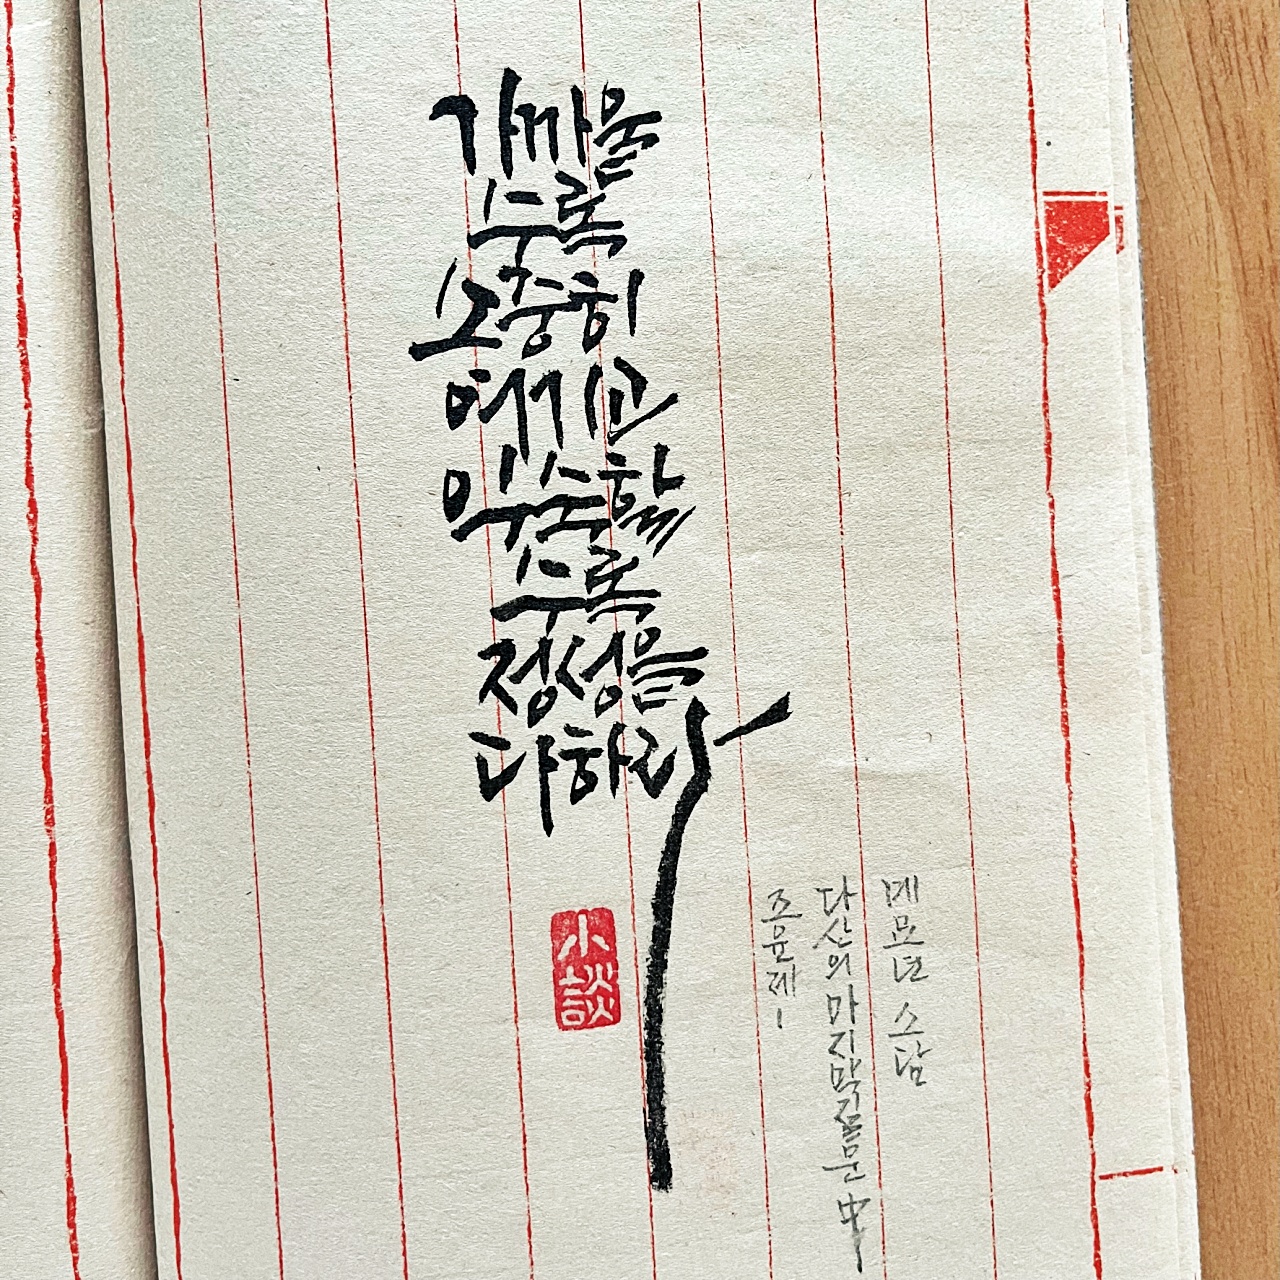 가까울
수록
소중히
여기고
익숙할
수록
정성을
다하라
小談
메모년 소담
다산의 마지막 질문 中
조윤제-